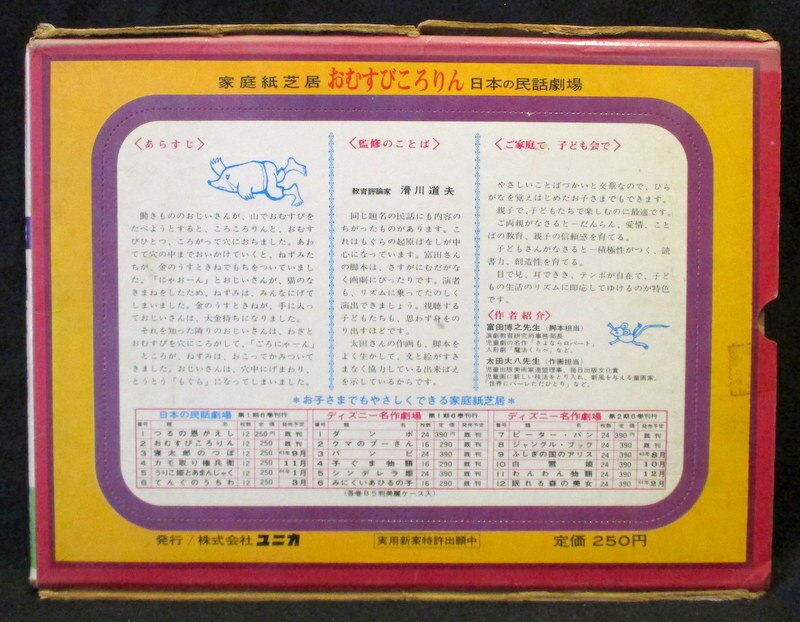 家庭紙芝居 おむすびころりん 日本の民話劇場
〈あらすじ〉
働きもののおじいさんが、山でおむすびを
たべようとすると、ころころりんと、おむす
びひとつ、ころがって穴におちました。あわ
てて穴の中までおいかけていくと、ねずみた
ちが、金のうすときねでもちをついていまし
た。「にゃおーん」とおじいさんが、猫のな
きまねをしたため、ねずみは、みんなにげて
しまいました。金のうすときねが、手に入っ
ておじいさんは、大金持ちになりました。
それを知った隣りのおじいさんは、わざと
おむすびを穴にころがして、「ごろにゃーん」
ところが、ねずみは、おこってかみついて
きました。おじいさんは、穴中にげまわり、
とうとう「もぐら」になってしまいました。
〈監修のことば〉
教育評論家 滑川道夫
同じ題名の民話にも内容の
ちがったものがあります。こ
れはもぐらの起原ばなしが中
心になっています。富田さん
の脚本は、さすがにむだがな
く画劇にぴったりです。演者
も、リズムに乗ってたのしく
演出できましょう。視聴する
子どもたちも、思わず身をの
り出すほどです。
太田さんの作画も、脚本を
よく生かして、文と絵がすき
まなく協力している出来ばえ
を示しているからです。
〈ご家庭で、子ども会で〉
やさしいことばづかいと文章なので、ひら
がなを覚えはじめたお子さまもできます。
親子で、子どもたちで楽しむのに最適です。
ご両親がなさると─だんらん、愛情、こと
ばの教育、親子の信頼感を育てる。
子どもさんがなさると─積極性がつく、読
書力、創造性を育てる。
目で見、耳できき、テンポが自在で、子ども
の生活のリズムに即応してゆけるのが特色
です。
〈作者紹介〉
富田博之先生(脚本担当)
演劇教育研究所事務局長
児童劇の名作「さよならロバート」
人形劇「魔法くらべ」など。
太田大八先生(作画担当)
児童出版美術家連盟理事、毎日出版文化賞
児童画に新しい技法をとり入れ、新風を与える童画家。
「世界にパーレただひとり」など。
＊お子さまでもやさしくできる家庭紙芝居＊
日本の民話劇場 第1期6巻刊行
番号 題名 枚数 定価 発売予定
1 つるの恩がえし 12 250円 既刊
2 おむすびころりん 12 250 既刊
3 寝太郎のつぼ 12 250 43年9月
4 カモ取り権兵衛 12 250 11月
5 うりこ姫とあまんじゃく 12 250 44年1月
6 てんぐのうちわ 12 250 3月
ディズニー名作劇場 第1期6巻刊行
番号 題名 枚数 定価 発売予定
1 ダンボ 24 390円 既刊
2 クマのプーさん 16 290 既刊
3 バンビ 24 390 既刊
4 子ぐま物語 16 290 既刊
5 シンデレラ姫 24 390 既刊
6 みにくいあひるの子 16 290 既刊
ディズニー名作劇場 第2期6巻刊行
番号 題名 枚数 定価 発売予定
7 ピーター・パン 24 390円 既刊
8 ジャングル・ブック 24 390 既刊
9 ふしぎの国のアリス 24 390 43年8月
10 白雪姫 24 390 10月
11 わんわん物語 24 390 12月
12 眠れる森の美女 24 390 44年2月
(各巻B5判美麗ケース入)
発行/株式会社 ユニカ
実用新案特許出願中
定価 250円